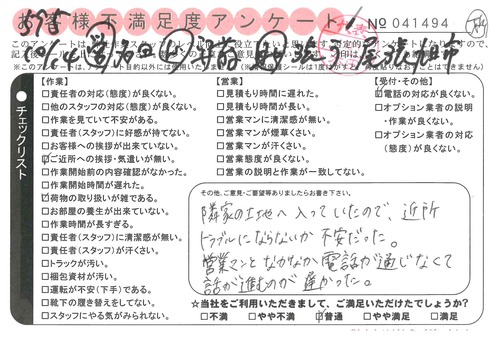 お客様不満足度アンケート
№ 041494
チェックリスト
【作業】
□責任者の対応(態度)が良くない。
□他のスタッフの対応(態度)が良くない。
□作業を見ていて不安がある。
□責任者(スタッフ)に好感が持てない。
□お客様への挨拶が出来ていない。
□ご近所への挨拶・気遣いが無い。
□作業開始前の内容確認がなかった。
□作業開始時間が遅れた。
□荷物の取り扱いが雑である。
□お部屋の養生が出来ていない。
□作業時間が長すぎる。
□責任者(スタッフ)に清潔感が無い。
□責任者(スタッフ)が汗さい。
□トラックが汚い。
□梱包資材が汚い。
□運転が不安(下手)である。
□靴下の履き替えをしてない。
□スタッフにやる気がみられない。
【営業】
□見積もり時間に遅れた。
□見積もり時間が長い。
□営業マンに清潔感が無い。
□営業マンが煙草くさい。
□営業マンが汗さい。
□営業態度が良くない。
□営業の説明と作業が一致してない。
【受付・その他】
□電話の対応が良くない。
□オプション業者の説明
・作業が良くない。
□オプション業者の対応
(態度)が良くない。
その他、ご意見・ご要望等ありましたらお書き下さい。
隣家の土地へ入っていたので、近所
トラブルにならないか不安だった。
営業マンとなかなか電話が通じなくて
話が進むのが遅かった。
☆当社をご利用いただきまして、ご満足いただけたでしょうか?
□不満 □やや不満 □普通 □やや満足 □満足